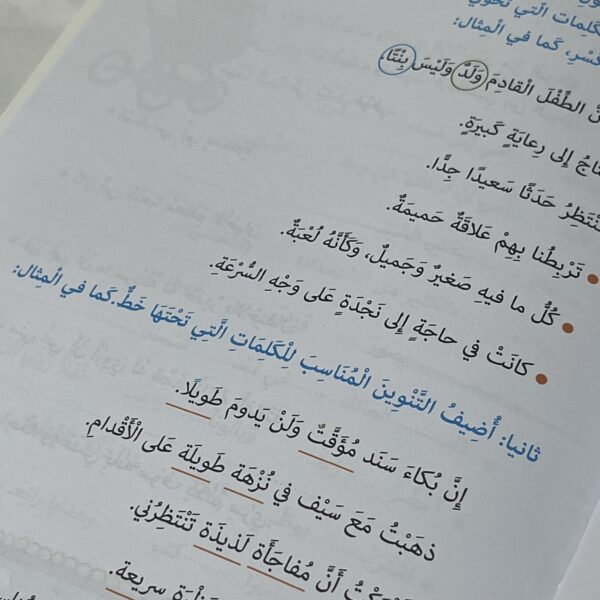 الْكَلِمات الَّتي تَحْوي
كَما في الْمِثال:
الطِّفْلَ الْقادِمَ وَلَدٌ وَلَيْسَ بِنْتًا.
إِلى رِعايَةٍ كَبيرَةٍ.
حَدَثًا سَعيدًا جِدًّا.
• تَرْبِطُنا بِهِمْ عَلاقَةٌ حَميمَةٌ.
• كُلُّ ما فيهِ صَغيرٌ وَجَميلٌ، وَكَأَنَّهُ لُعْبَةٌ.
• كانَتْ في حاجَةٍ إِلى نَجْدَةٍ عَلى وَجْهِ السُّرْعَةِ.
ثانيا: أُضِيفُ التَّنْوِينَ الْمُنَاسِبَ لِلْكَلِمَاتِ الَّتِي تَحْتَهَا خَطٌّ.كَما في الْمِثال:
إِنَّ بُكاءَ سَنَد مُؤَقَّتٌ وَلَنْ يَدومَ طَويلًا.
ذهَبْتُ مَعَ سَيْف في نُزْهَة طَويلَة عَلى الْأَقْدامِ.
أَنَّ مُفاجَأَة لَذيذَة تَنْتَظِرُني.
سريعة.